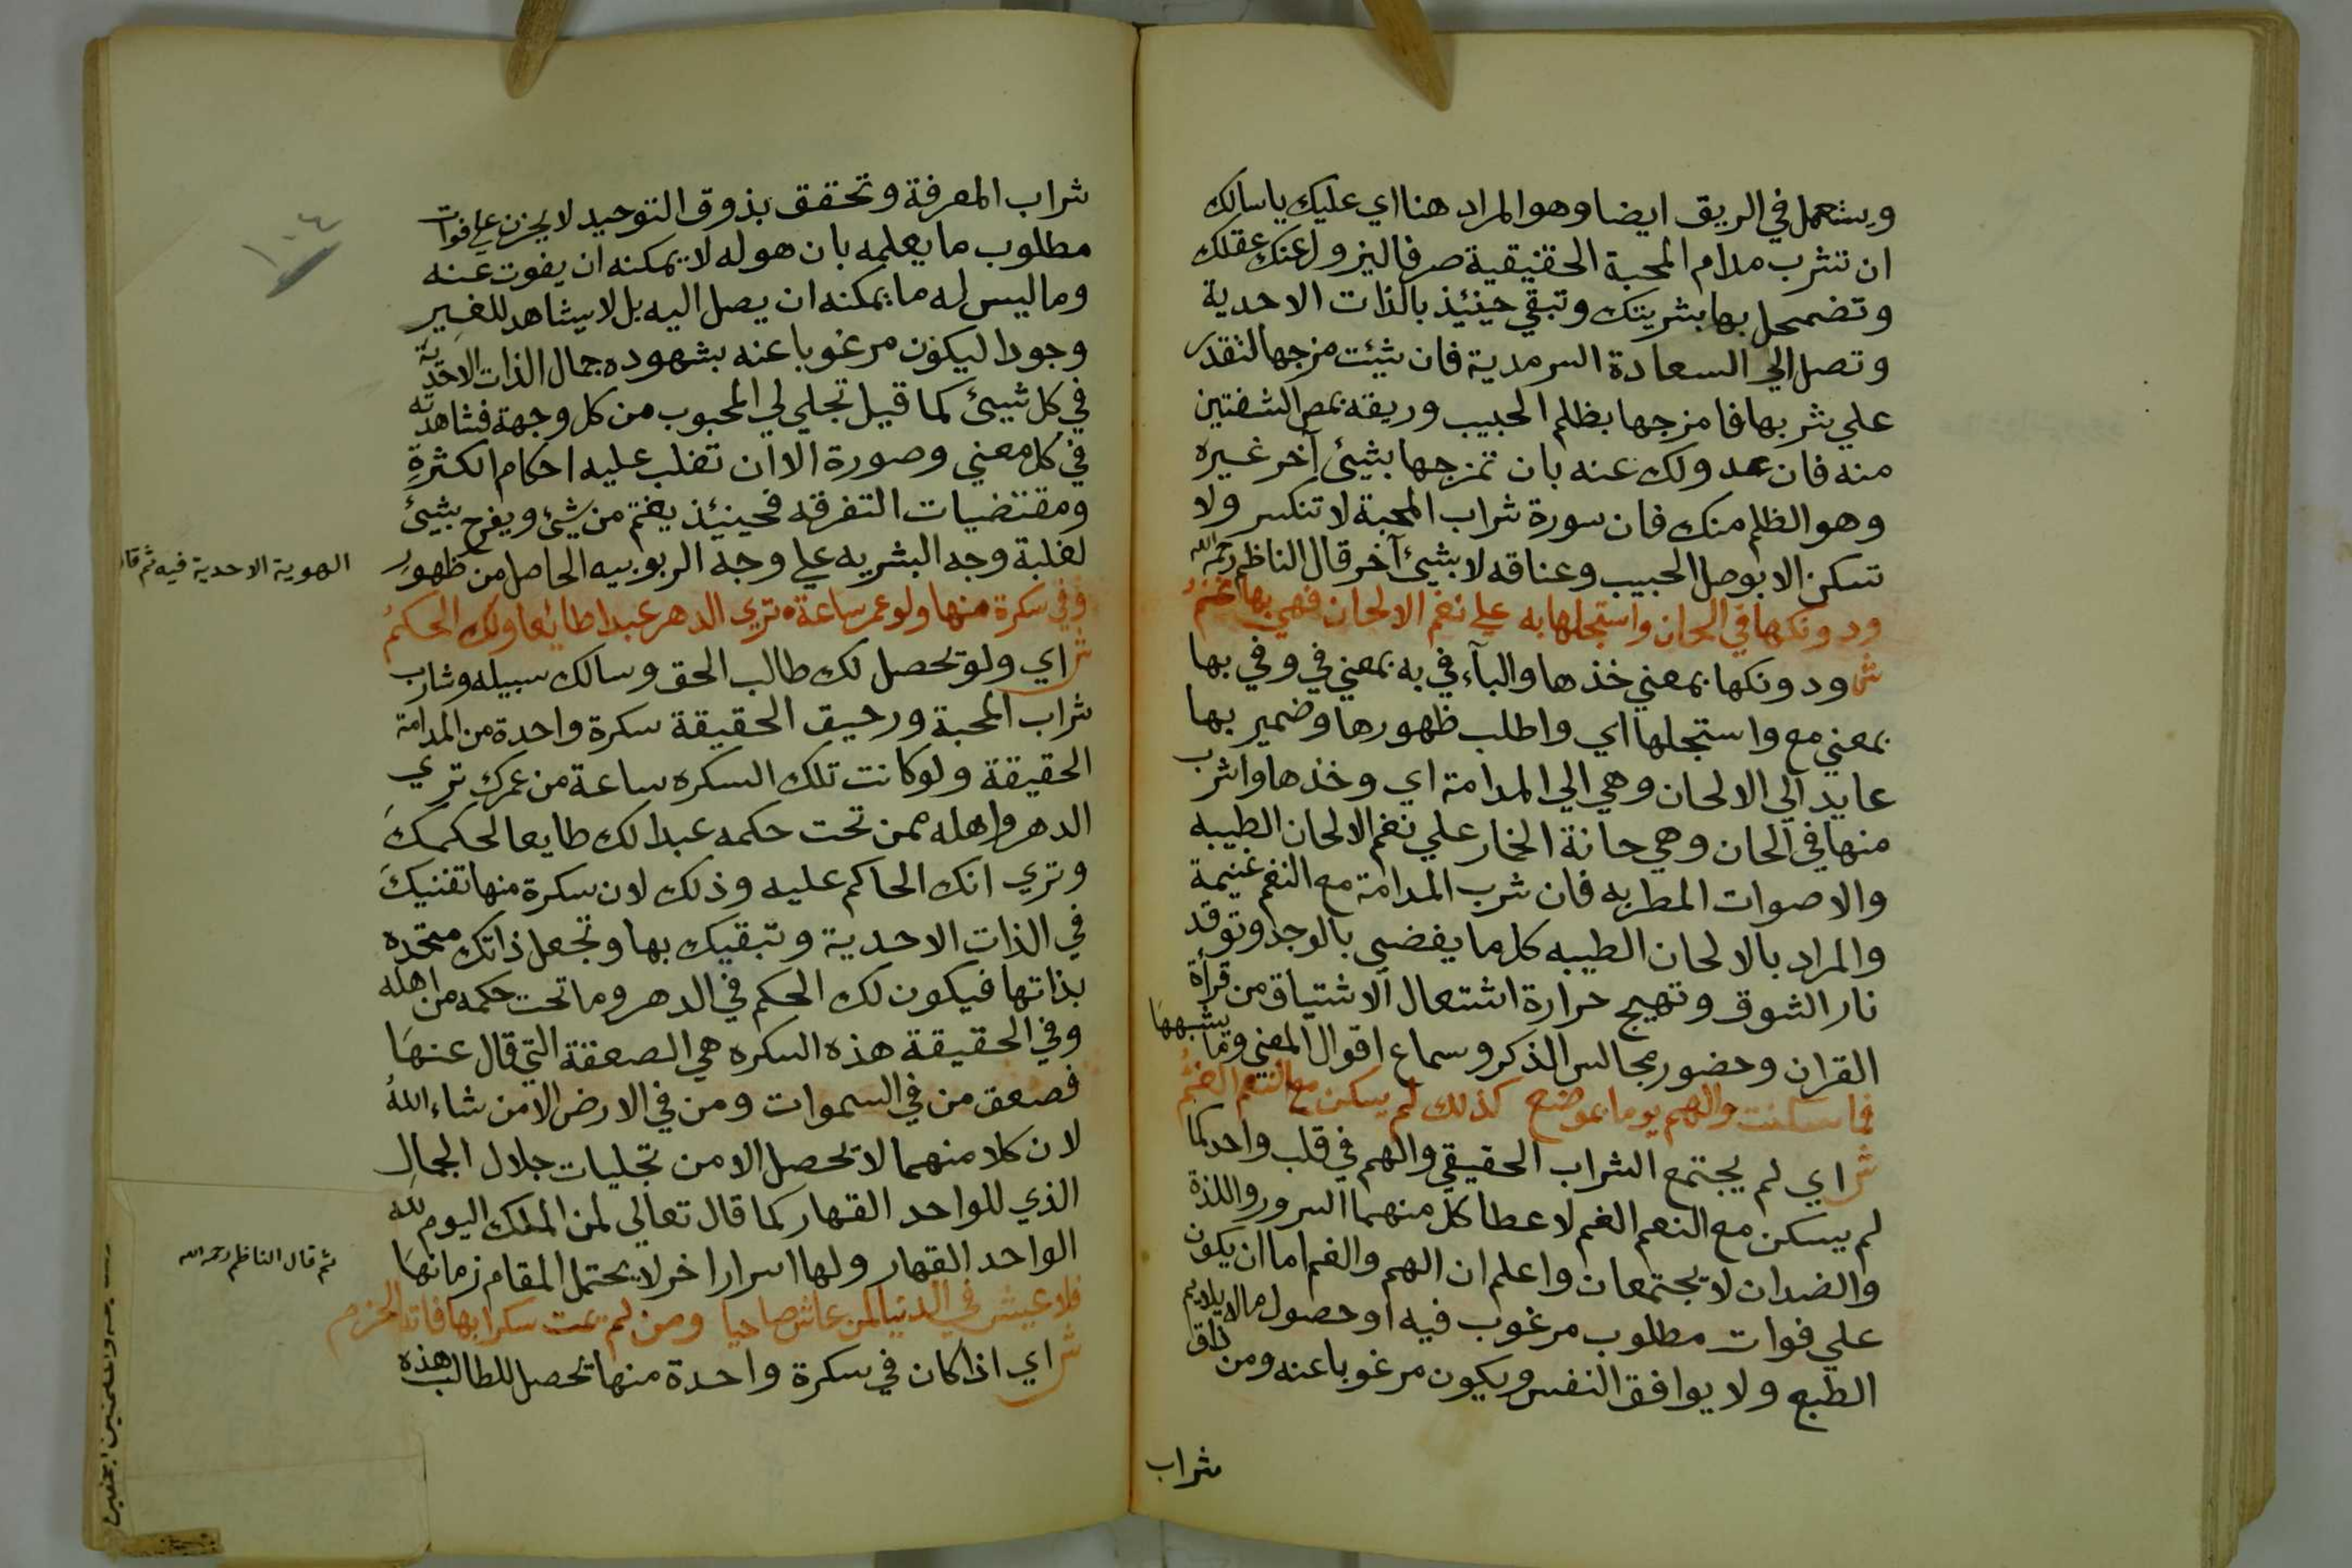 ويستعمل في الريق ايضا وهو المراد هنا اي عليك يا سالك
ان تشرب مدام المحبة الحقيقية صرفا ليزول عنك عقلك
وتضمحل بها بشريتك وتبقي حينئيذ بالذات الاحدية
وتصل الي السعادة السرمدية فان شئت مزجها لتقدر
علي شربها فامزجها بظلم الحبيب وريقه بمص الشفتين
منه فان عدولك عنه بان تمزجها بشيئ آخر غيره
وهو الظلم منك فان سورة شراب المحبة لا تنكسر ولا
تسكن الا بوصل الحبيب وعناقه لا بشيئ آخر قال الناظم رحمه الله
ودونكها في الحان واستجلها به علي نغم الالحان فهي بها غنم
ش ودونكها بمعني خذها والبآء في به بمعني في وفي بها
بمعني مع واستجلها اي واطلب ظهورها وضمير بها
عايد الي الالحان وهي الي المدامة اي وخذها واشرب
منها في الحان وهي حانة الخمار علي نغم الالحان الطيبه
والاصوات المطربه فان شرب المدامة مع النغم غنيمة
والمراد بالالحان الطيبه كل ما يفضي بالوجد وتوقد
نار الشوق وتهيج حرارة اشتعال الاشتياق من قرأة
القران وحضور مجالس الذكر وسماع اقوال المغني وما يشبهها
فما سكنت والهم يوما بموضع كذلك لم يسكن مع النعم الغم
ش اي لم يجتمع الشراب الحقيقي والهم في قلب واحد كما
لم يسكن مع النعم الغم لاعطا كل منهما السرور واللذة
والضدان لا يجتمعان واعلم ان الهم والغم اما ان يكون
علي فوات مطلوب مرغوب فيه او حصول ما لا يلايم
الطبع ولا يوافق النفس ويكون مرغوبا عنه ومن ذاق
شراب
شراب المعرفة وتحقق بذوق التوحيد لا يحزن علي فوات
مطلوب ما يعلمه بان هو له لا يمكنه ان يفوت عنه
وما ليس له ما يمكنه ان يصل اليه بل لا يشاهد للغير
وجودا ليكون مرغوبا عنه بشهوده جمال الذات الاحدية
في كل شيئ كما قيل تجلي لي المحبوب من كل وجهة فشاهدته
في كل معني وصورة الا ان تغلب عليه احكام الكثرة
ومقتضيات التفرقه فحينيئذ يغتم من شيئ ويفرح بشيئ
لغلبة وجه البشريه علي وجه الربوبيه الحاصل من ظهور
الهوية الاحدية فيه ثم قال
وفي سكرة منها ولو عمر ساعة تري الدهر عبدا طايعا ولك الحكم
ش اي ولو تحصل لك طالب الحق وسالك سبيله وشارب
شراب المحبة ورحيق الحقيقة سكرة واحدة من المدامة
الحقيقة ولو كانت تلك السكره ساعة من عمرك تري
الدهر واهله ممن تحت حكمه عبدا لك طايعا لحكمك
وتري انك الحاكم عليه وذلك لان سكرة منها تفنيك
في الذات الاحدية وتبقيك بها وتجعل ذاتك متحده
بذاتها فيكون لك الحكم في الدهر وما تحت حكمه من اهله
وفي الحقيقة هذه السكره هي الصعقة التي قال عنها
فصعق من في السموات ومن في الارض الا من شاء الله
لان كلا منهما لا تحصل الا من تجليات جلال الجمال
الذي للواحد القهار كما قال تعالي لمن الملك اليوم لله
الواحد القهار ولها اسرار اخر لا يحتمل المقام زمانها
ثم قال الناظم رحمه الله
فلا عيش في الدنيا لمن عاش صاحيا ومن لم يمت سكرا بها فاته الحزم
ش اي اذا كان في سكرة واحدة منها تحصل للطالب هذه
١٠٤